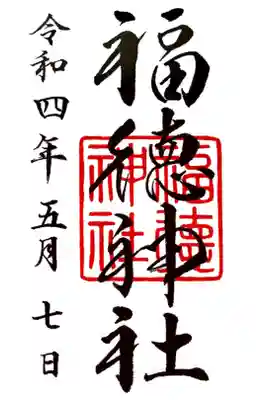 福徳神社
令和四年五月七日
福徳
神社